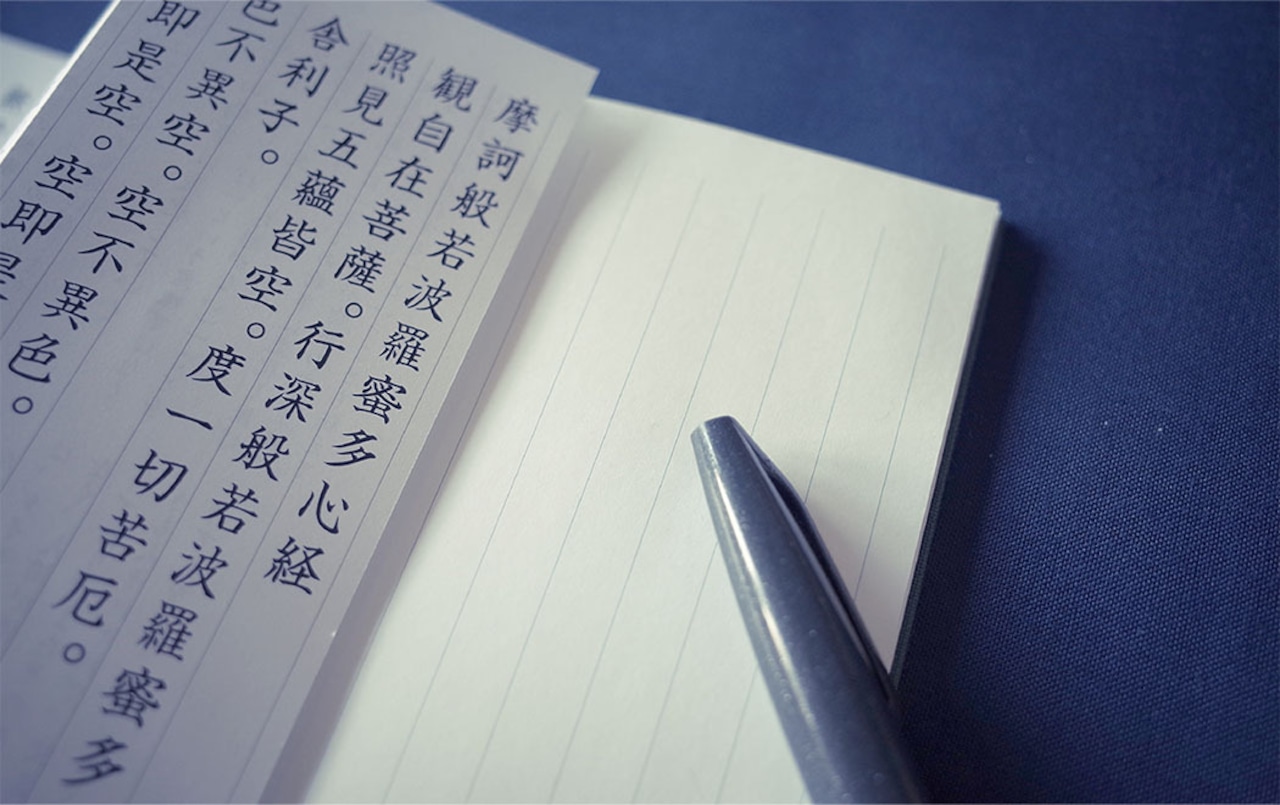 摩訶般若波羅蜜多心経
観自在菩薩。行深般若波羅蜜多
照見五蘊皆空。度一切苦厄。
舎利子。
色不異空。空不異色。
即是空。空即是